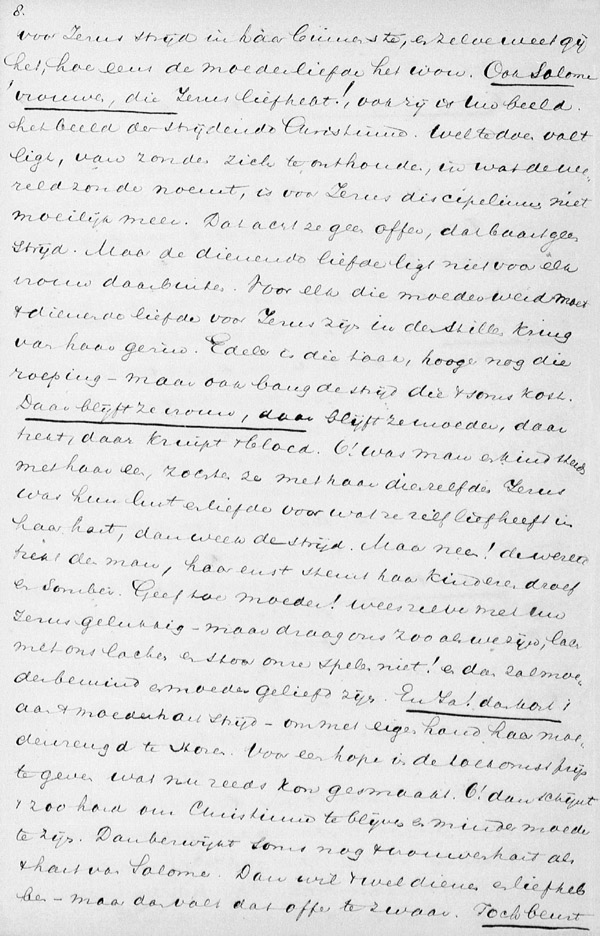 8.
voor Jezus strijd in haar binnenste, en zelve weet gij
het, hoe eens de moederliefde het won. Ook Salome
vrouwen, die Jezus liefhebt!, ook zij is Uw beeld.
het beeld der strijdende Christinne. Weltedoen valt
ligt, van zonden zich te onthouden, in wat de we-
reld zonde noemt, is voor Jezus discipelinne niet
moeilijk meer. Dat acht ze geen offer, dat baart geen
strijd. Maar de dienende liefde ligt niet voor elke
vrouw daarbuiten. Voor elk die moeder werd moet
't dienende liefde voor Jezus zijn in den stillen kring
van haar gezin. Edele is die taak, hooge nog die
roeping – maar ook bang de strijd die 't soms kost.
Daar blijft ze vrouw, daar blijft ze moeder, daar
trekt, daar knijpt 't bloed. O! was man en kind steeds
met haar een, zochten ze met haar dienzelfden Jezus
was hun lust en liefde voor wat ze zelf liefheeft in
haar hart, dan week de strijd. Maar neen! de wereld
trekt den man, haar ernst stemt haar kinderen droef
en somber. Geef toe moeder! wees zelve met Uw
Jezus gelukkig – maar draag ons zoo als we zijn, lach
met ons lachen en stoor onze spelen niet! en dan zal moe-
der bemind en moeder geliefd zijn. En Ja! dan kost 't
aan 't moederhart strijd – om met eigen hand haar moe-
dervreugd te storen. Voor een hope in de toekomst prijs
te geven wat nu reeds kon gesmaakt. O! dan schijnt
't zoo hard om Christinne te blijven en minder moeder
te zijn. Dan bezwijkt soms nog 't vrouwenhart als
't hart van Salome. Dan wil 't wel dienen en liefheb
ben – maar dan valt dat offer te zwaar. Toch beurt